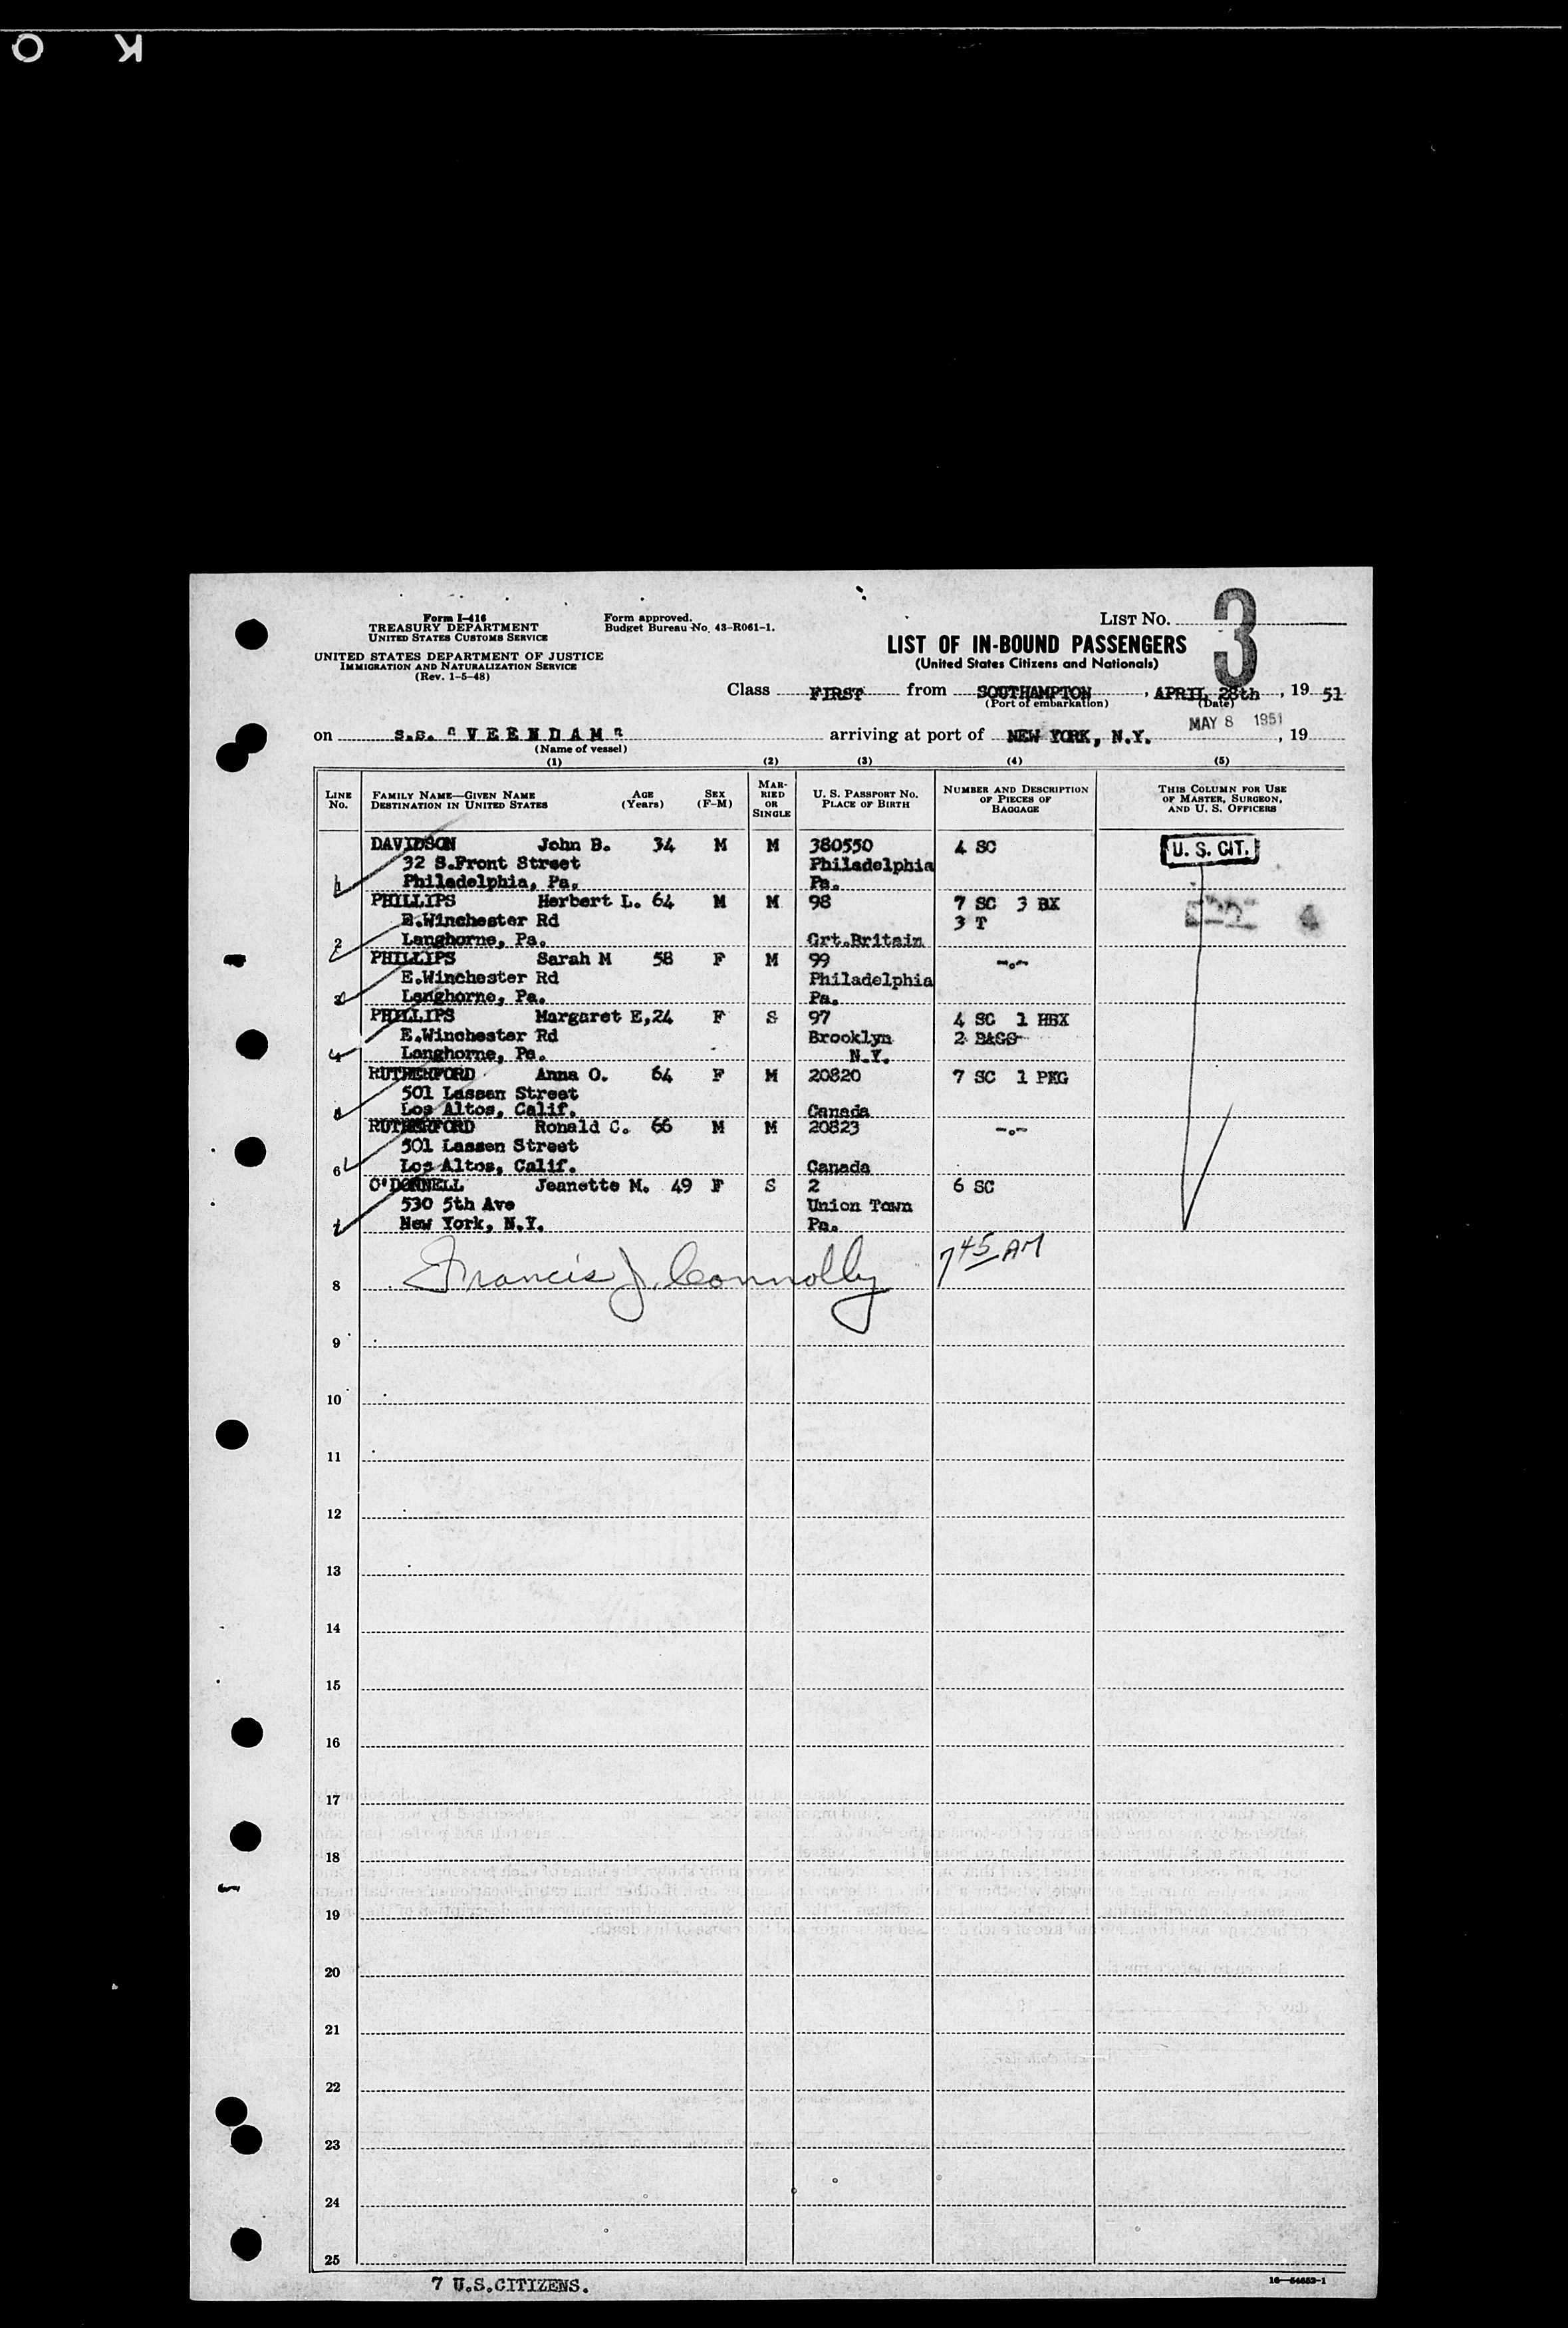 O K
Form I-416
TREASURY DEPARTMENT
UNITED STATES CUSTOMS SERVICE
UNITED STATES DEPARTMENT OF JUSTICE
IMMIGRATION AND NATURALIZATION SERVICE
(Rev. 1-5-48)
Form approved.
Budget Bureau No. 43-R061-1.
LIST NO. 3
LIST OF IN-BOUND PASSENGERS
(United States Citizens and Nationals)
Class FIRST from SOUTHAMPTON, APRIL 28th, 1951
(Port of embarkation) (Date)
on s.s. "VEENDAM" arriving at port of NEW YORK, N.Y. MAY 8 1951, 19
(Name of vessel)
(1) (2) (3) (4) (5)
LINE NO. FAMILY NAME—GIVEN NAME DESTINATION IN UNITED STATES AGE (Years) SEX (F-M) MARRIED OR SINGLE U. S. PASSPORT NO. PLACE OF BIRTH NUMBER AND DESCRIPTION OF PIECES OF BAGGAGE THIS COLUMN FOR USE OF MASTER, SURGEON, AND U. S. OFFICERS
DAVIDSON John B. 34 M M 380550 4 SC U. S. CIT.
32 S.Front Street Philadelphia
1 Philadelphia, Pa. Pa.
PHILLIPS Herbert L. 64 M M 98 7 SC 3 BX
E.Winchester Rd 3 T
2 Langhorne, Pa. Grt.Britain
PHILLIPS Sarah M 58 F M 99 -.-
E.Winchester Rd Philadelphia
3 Langhorne, Pa. Pa.
PHILLIPS Margaret E, 24 F S 97 4 SC 1 HBX
E.Winchester Rd Brooklyn 2 BAGS
4 Langhorne, Pa. N.Y.
RUTHERFORD Anna O. 64 F M 20820 7 SC 1 PKG
501 Lassen Street
5 Los Altos, Calif. Canada
RUTHERFORD Ronald C. 66 M M 20823 -.-
501 Lassen Street
6 Los Altos, Calif. Canada
O'DONNELL Jeanette M. 49 F S 2 6 SC
530 5th Ave Union Town
7 New York, N.Y. Pa.
8 Francis J. Connolly 7 45 AM
9
10
11
12
13
14
15
16
17
18
19
20
21
22
23
24
25
7 U.S.CITIZENS.
16—54652-1